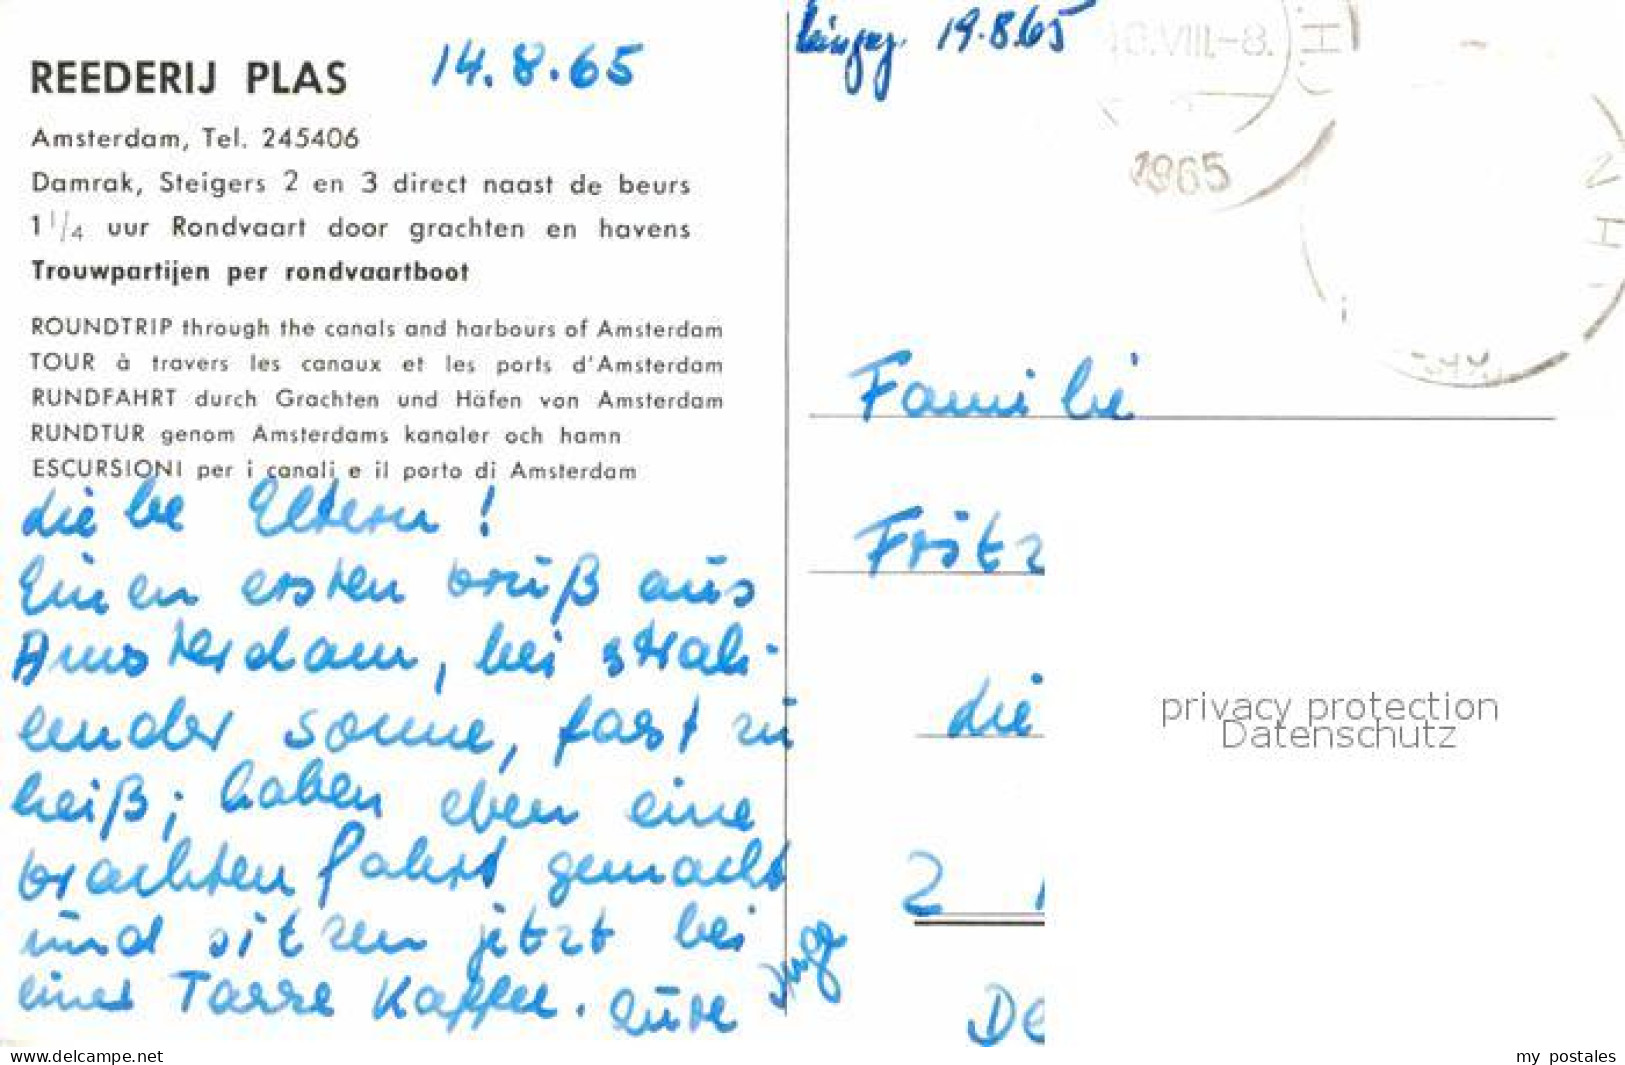 REEDERIJ PLAS
14.8.65
Amsterdam, Tel. 245406
Damrak, Steigers 2 en 3 direct naast de beurs
1 1/4 uur Rondvaart door grachten en havens
Trouwpartijen per rondvaartboot
ROUNDTRIP through the canals and harbours of Amsterdam
TOUR à travers les canaux et les ports d'Amsterdam
RUNDFAHRT durch Grachten und Häfen von Amsterdam
RUNDTUR genom Amsterdams kanaler och hamn
ESCURSIONI per i canali e il porto di Amsterdam
Liebe Eltern!
Einen ersten Gruß aus
Amsterdam, bei strah-
lender Sonne, fast zu
heiß; haben eben eine
Grachtenfahrt gemacht
und sitzen jetzt bei
einer Tasse Kaffee. Eure
Inge
19.8.65
VIII.-8.
1965
Familie
Fritz
Lie
2
De
privacy protection
Datenschutz
www.delcampe.net
my postales